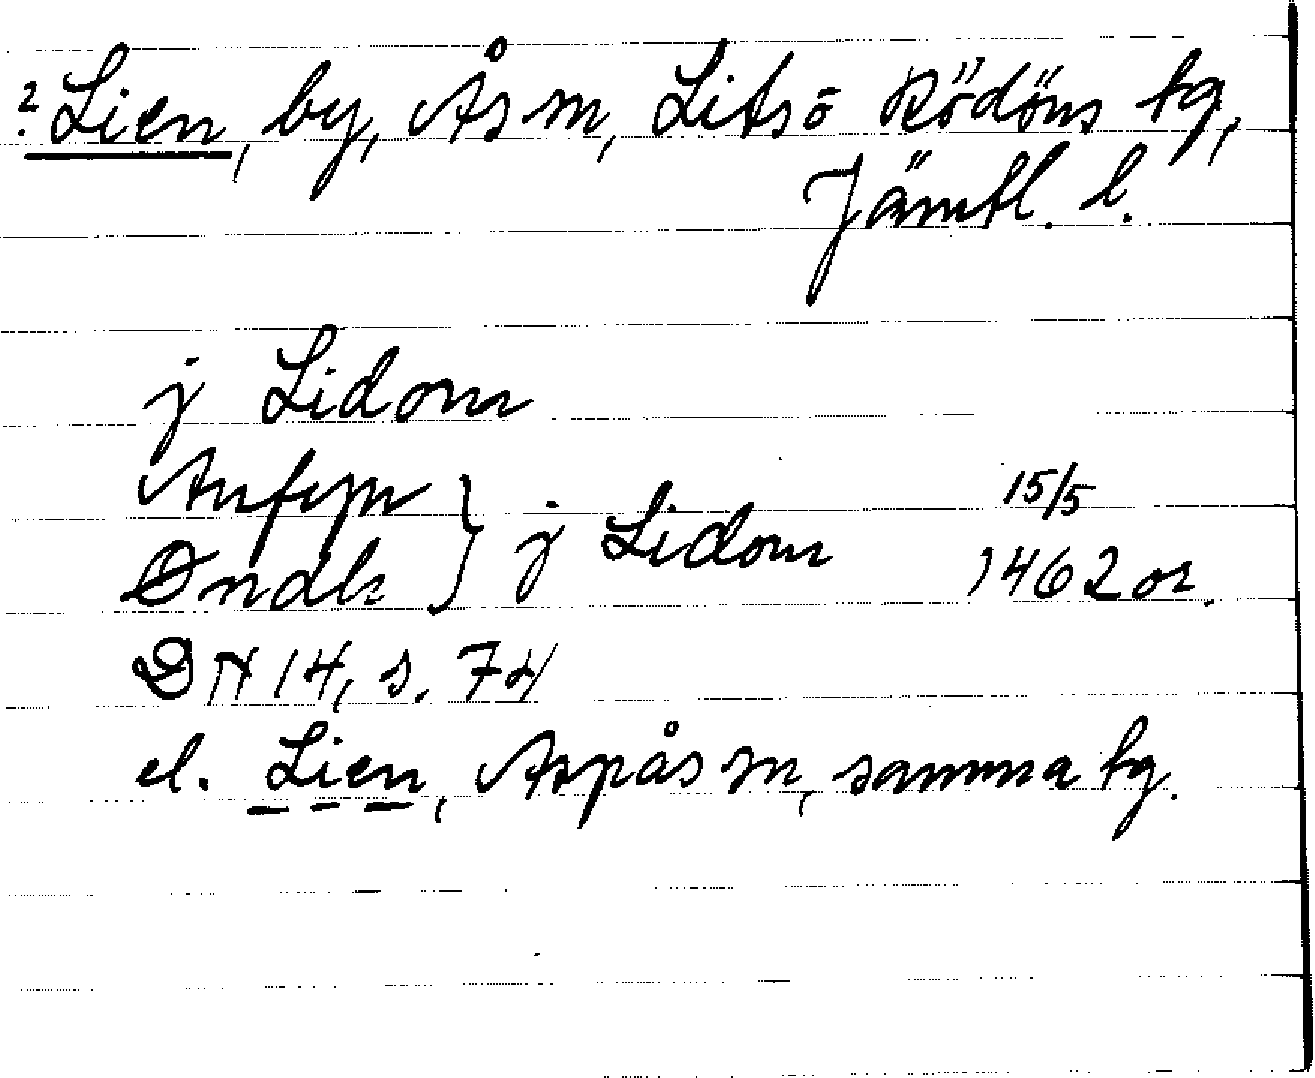 ? Lien, by, Ås sn, Lits o Rödöns tg,
Jämtl. l.
j Lidom
j Lidom 15/5
Øndh 1462 or.
DN 14, s. 74
el. Lien, Aspås sn, samma tg.